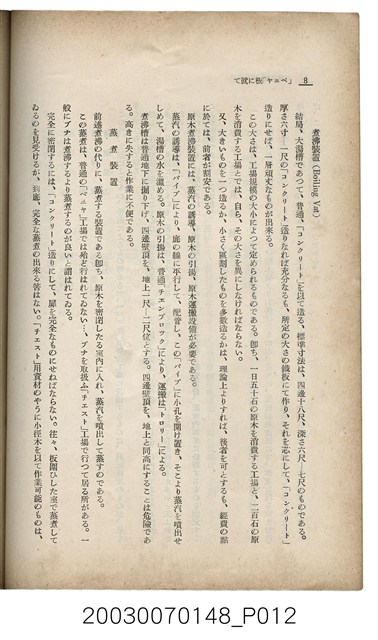 8　「ベニヤ」板に就て
煮沸裝置（Boiling Vat）
結局、大湯槽であつて、普通、「コンクリート」を以て造る、標準寸法は、四邊十八尺、深さ六尺―七尺のもので、
厚さ六寸―一尺の「コンクリート」造りなれば充分なるも、所定の大さの鐵板にて作り、それを芯にして、「コンクリート」
造りにせば、一層頑丈なものが出來る。
この大さは、工場規模の大小によつて定めらるものである。卽ち、一日五十石の原木を消費する工場と、二百石の原
木を消費する工場とでは、自ら、その大さを異にしなければならない。
又、大きいものを一つ造るか、小さく區劃したものを多數造るかは、理論上よりすれば、後者を可とするも、經費の點
に於ては、前者が割安である。
原木煮沸裝置には、蒸汽の誘導、原木の引揚、原木運搬設備が必要である。
蒸汽の誘導は、「パイプ」により、廊の緣に平行して、配管し、この「パイプ」に小孔を開け置き、そこより蒸汽を噴出せ
しめて、湯槽の水を溫める。原木の引揚は、普通「チエンブロツク」により、運搬は「トロリー」による。
煮沸槽は普通地下に掘り下げ、四邊壁頂を、地上一尺―二尺位とする。四邊壁頂を、地上と同高にすることは危險であ
る。高きに失すると作業に不便である。
蒸煮裝置
前述煮沸の代りに、蒸煮する裝置である卽ち、原木を密閉したる室內に入れ、蒸汽を噴出して蒸すのである。
この蒸煮は、普通の「ベニヤ」工場では殆ど行はれてゐない…、ブナを取扱ふ「チエスト」工場で行つて居る所がある。一
般にブナは煮沸するより蒸煮するのが良いと謂はれてゐる。
完全に密閉するには、「コンクリート」造りにして、扉を完全なものにせねばならない。往々、板圍ひした室で蒸煮して
ゐるのを見受けるが、到底、完全な蒸煮の出來る筈はない。「チエスト」用資材のやうに小徑木を以て作業可能のものは、
20030070148_P012